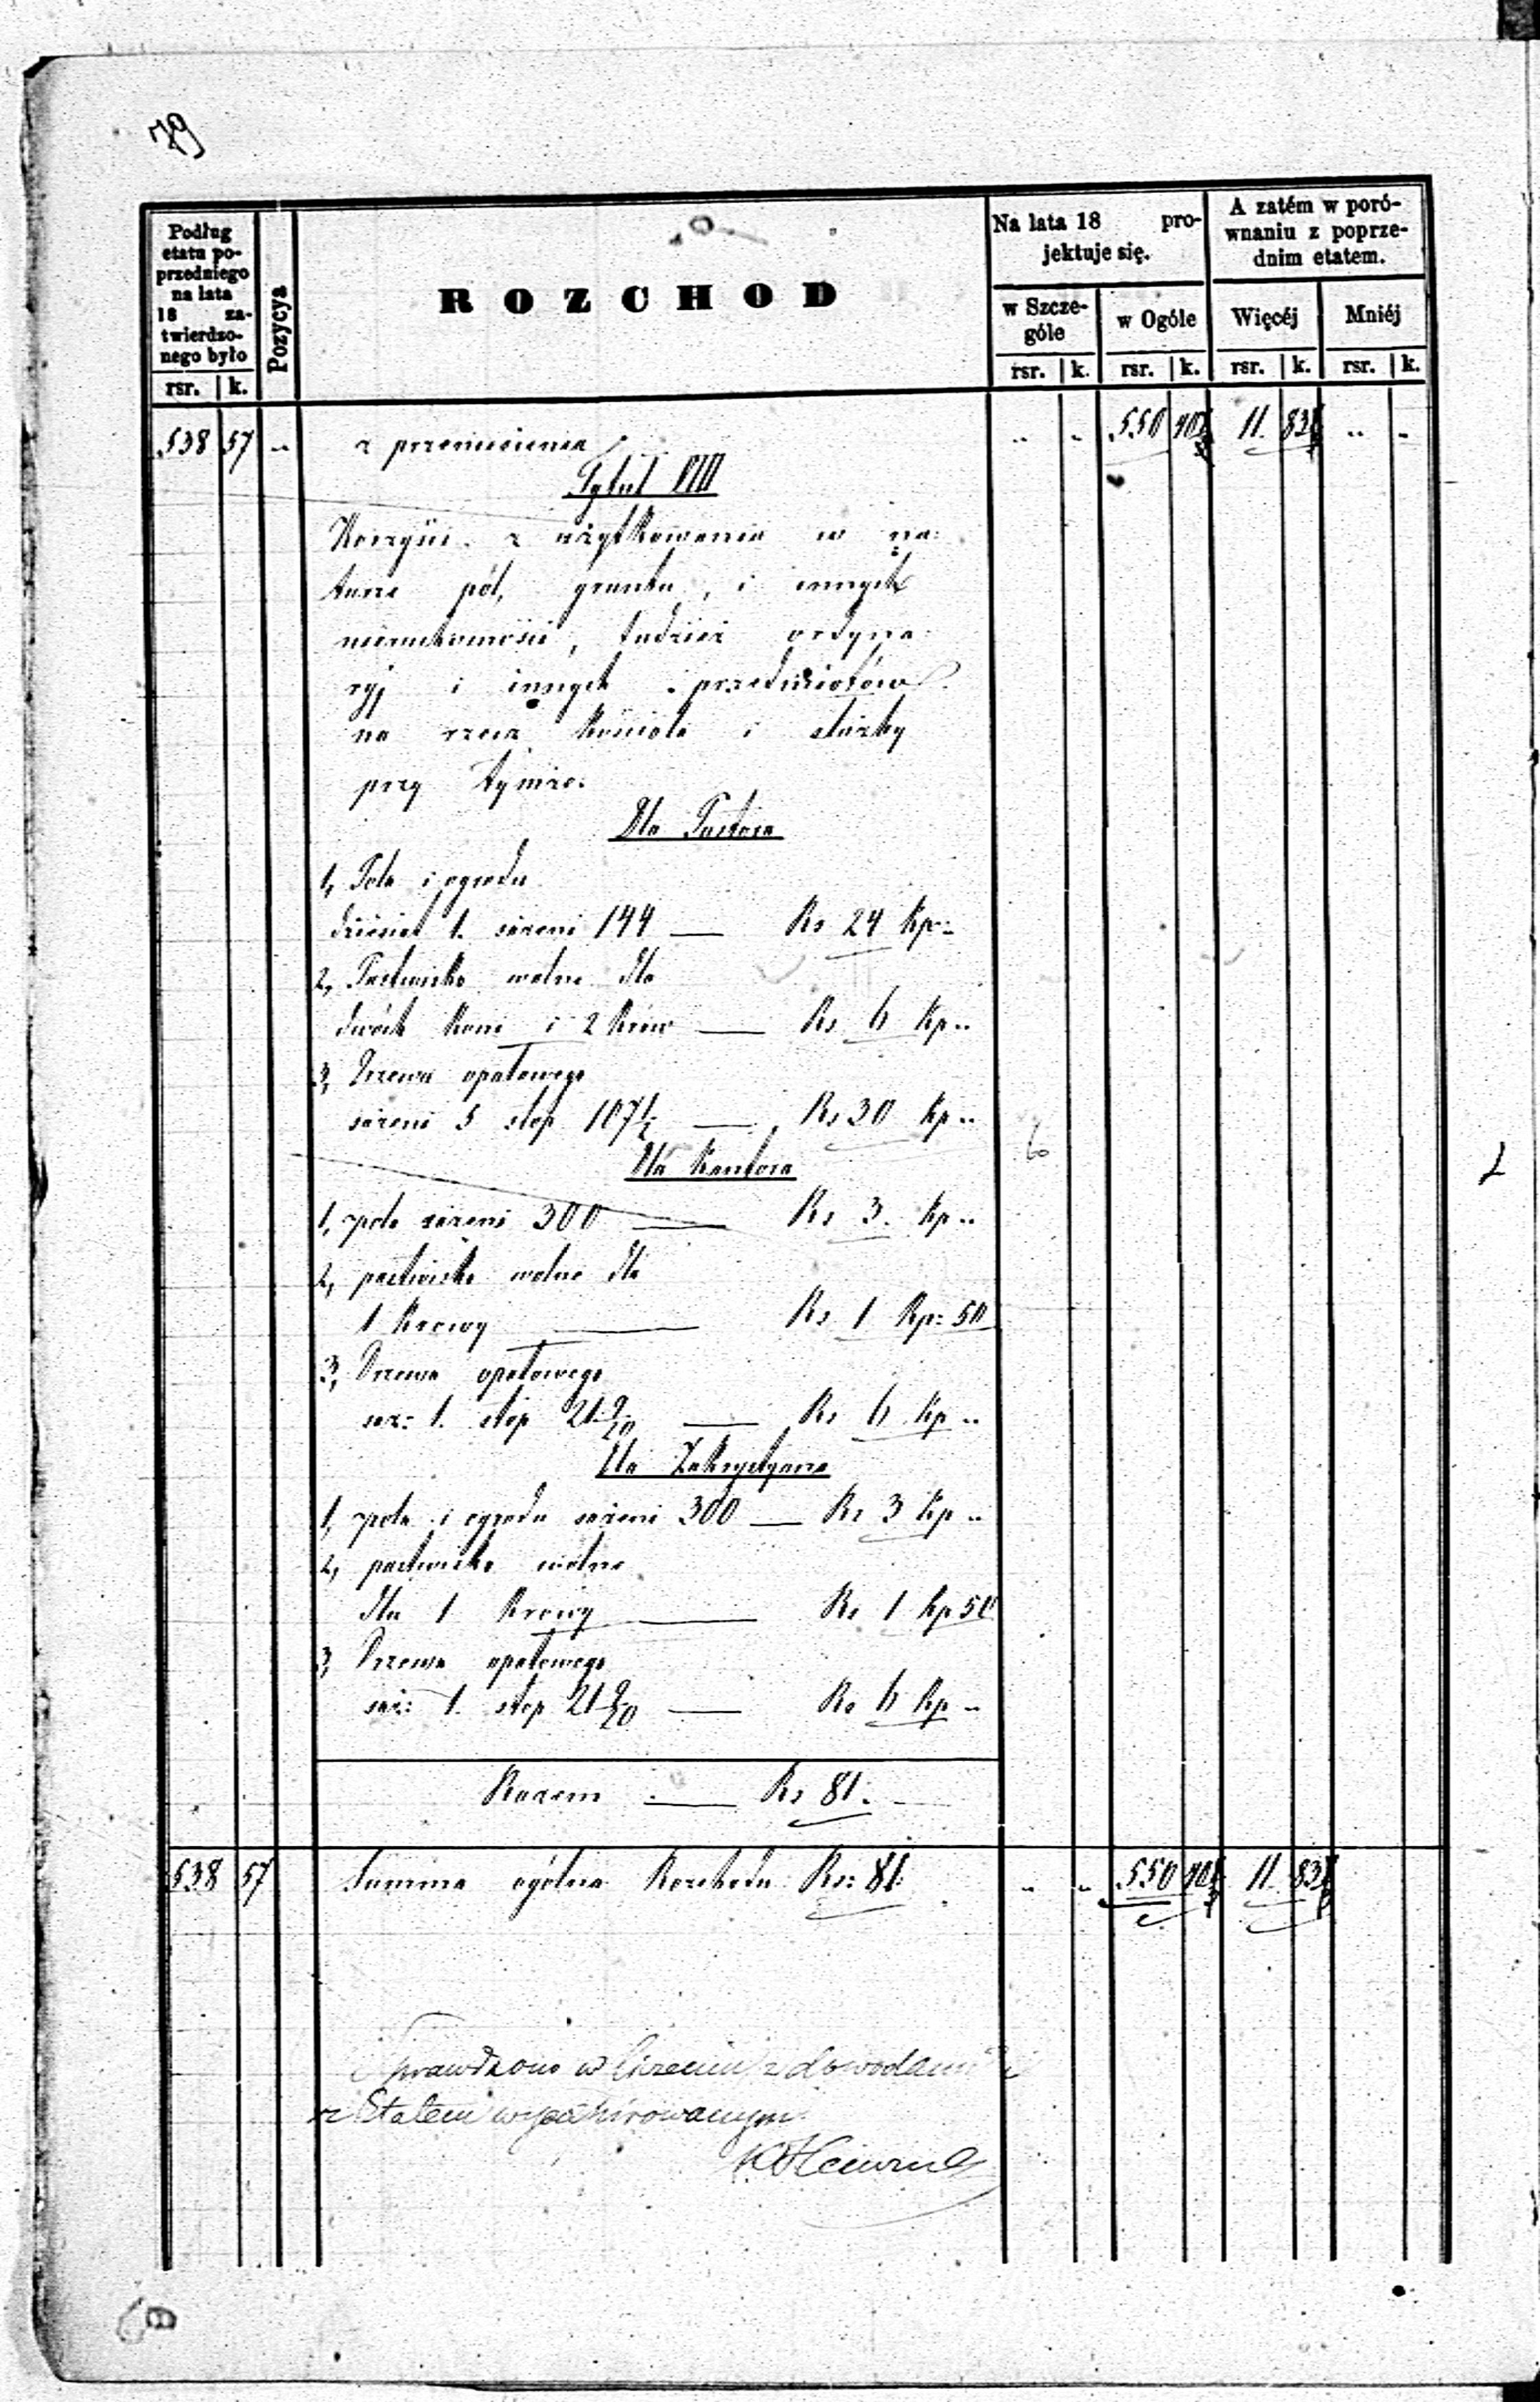 79
Podług
etatu po-
przedniego
na lata
18 za-
twierdzo-
nego było
rsr. k.
Pozycya
ROZCHOD
Na lata 18 pro-
jektuje się.
w Szcze-
góle
rsr. k.
w Ogóle
rsr. k.
A zatém w poró-
wnaniu z poprze-
dnim etatem.
Więcéj
rsr. k.
Mniéj
rsr. k.
538 57 " z przeniesienia " " 550 40½ 11 83½ " "
Tytuł VIII
Korzyści z użytkowania w na:
turze pól, gruntu, i innych
nieruchomości, tudzież ordyna:
ryj i innych przedmiotów
na rzecz Kościoła i służby
przy tymże.
Dla Pastora
1, Pola i ogrodu
dziesiat 1. sążeni 144 — Rs 24 Kp "
2, Pastwisko wolne dla
dwóch Koni i 2 Krów — Rs 6 Kp "
3, Drzewa opałowego
sążeni 5 stop 107½ — Rs 30 Kp "
Dla Kantora
1, pola sążeni 300 — Rs 3. Kp "
2, pastwisko wolne dla
1 Krowy — Rs 1 Kp: 50
3, Drzewa opałowego
saż: 1. stop 21 9/20 — Rs 6 Kp "
Dla Zakrystyana
1, pola i ogrodu sążeni 300 — Rs 3 Kp "
2, pastwisko wolne
dla 1 Krowy — Rs 1 Kp 50
3, Drzewa opałowego
saż: 1. stop 21 9/20 — Rs 6 Kp "
Razem — Rs 81.
538 57 Summa ogólna Rozchodu Rs: 81. " " 550 40½ 11 83½
Sprawdzono w z dowodami i
z Etatem